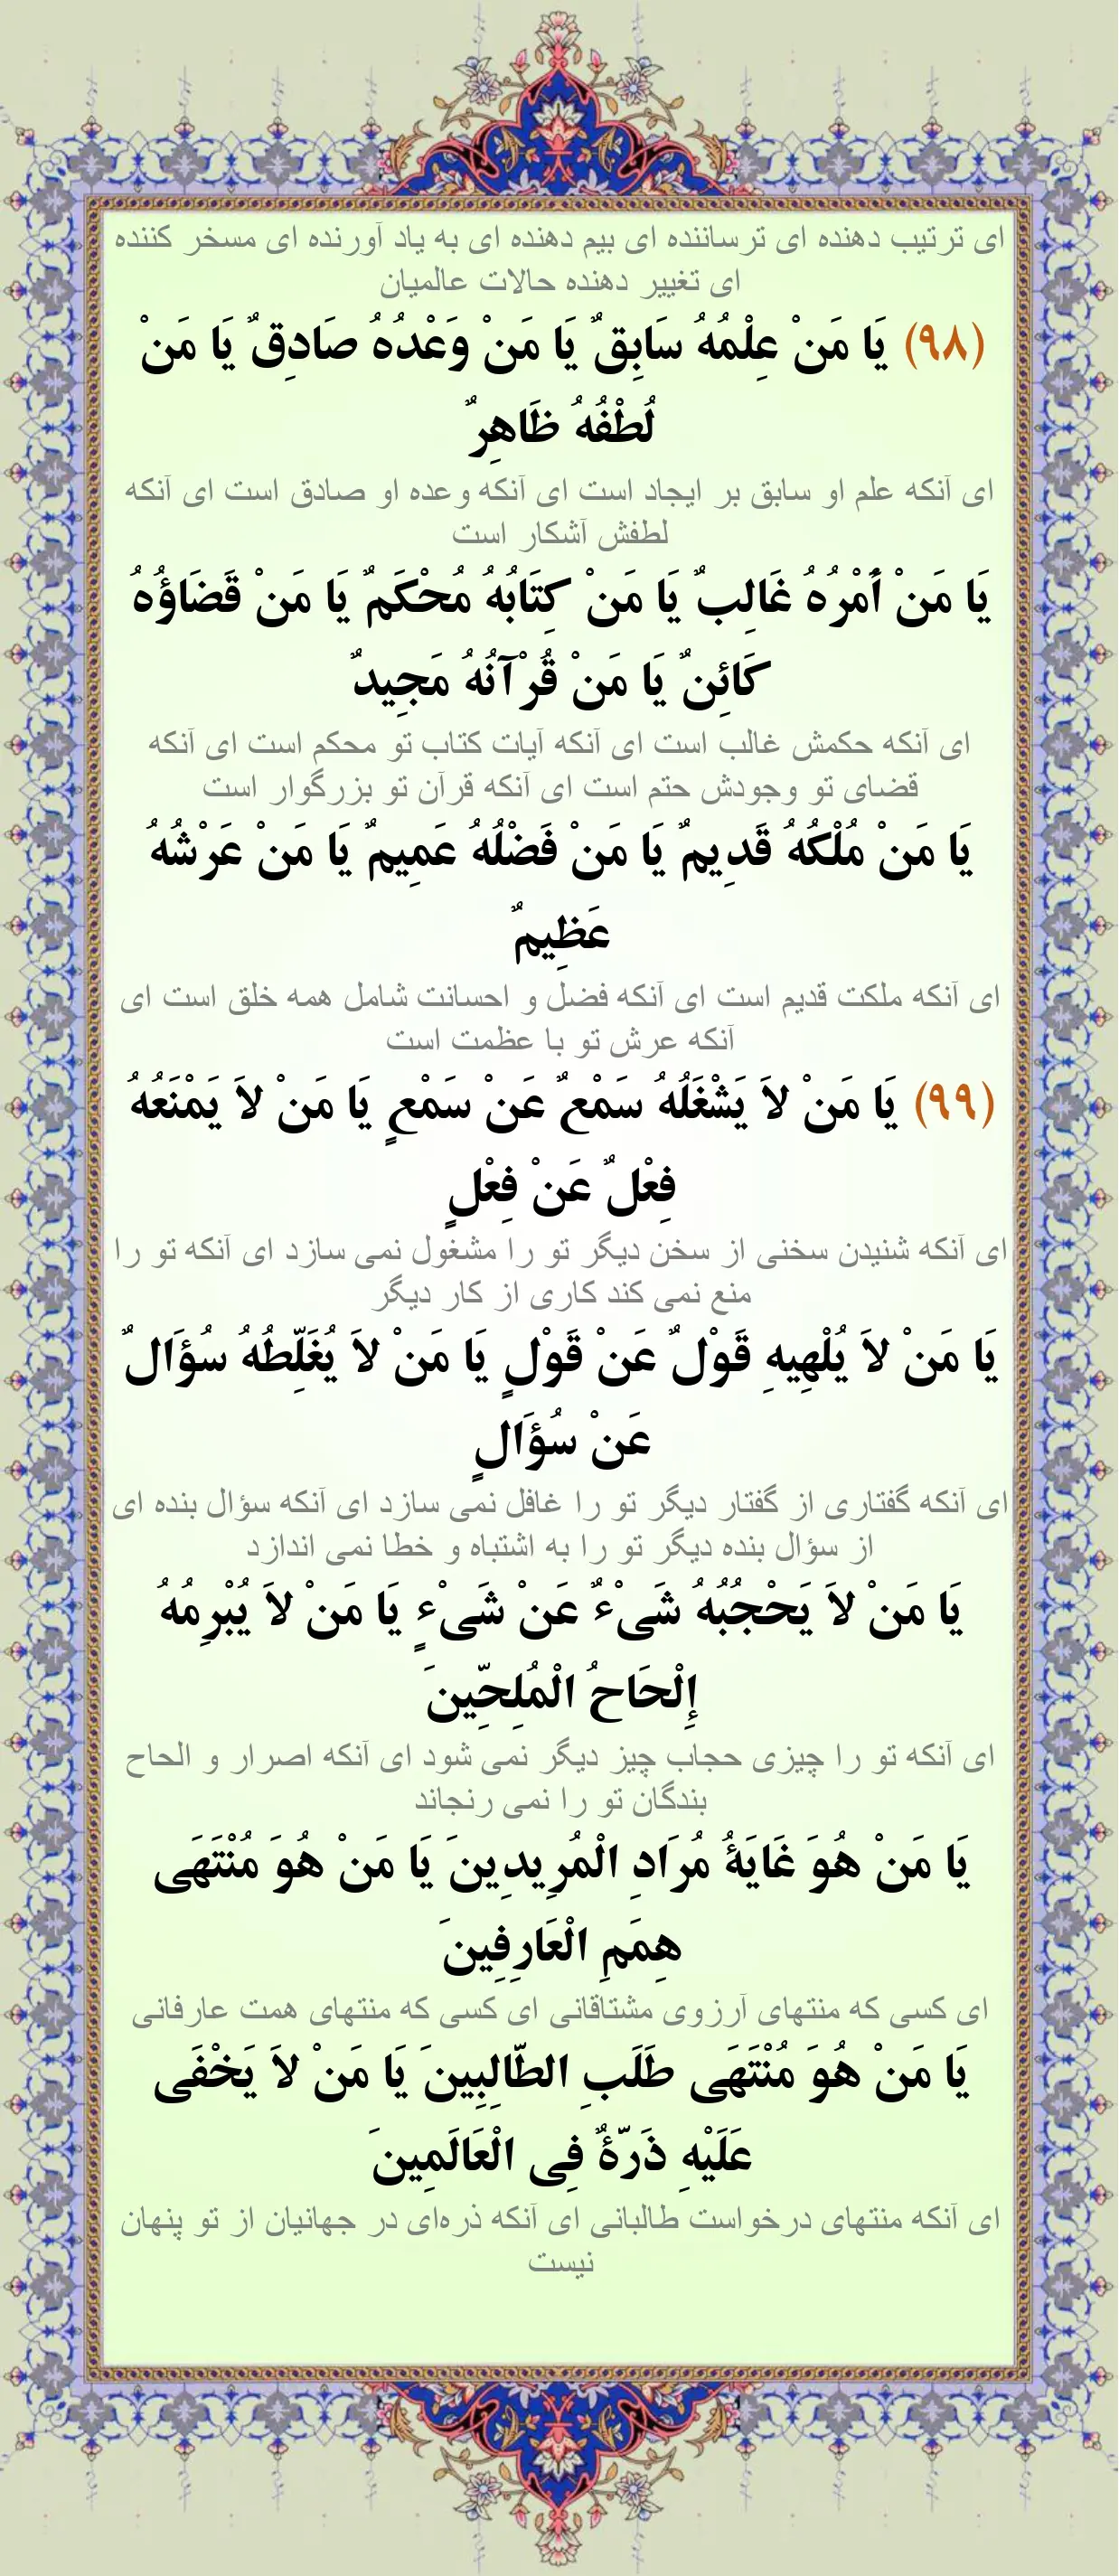 ای ترتیب دهنده ای ترساننده ای بیم دهنده ای به یاد آورنده ای مسخر کننده
ای تغییر دهنده حالات عالمیان
(۹۸) یَا مَنْ عِلْمُهُ سَابِقٌ یَا مَنْ وَعْدُهُ صَادِقٌ یَا مَنْ
لُطْفُهُ ظَاهِرٌ
ای آنکه علم او سابق بر ایجاد است ای آنکه وعده او صادق است ای آنکه
لطفش آشکار است
یَا مَنْ أَمْرُهُ غَالِبٌ یَا مَنْ کِتَابُهُ مُحْکَمٌ یَا مَنْ قَضَاؤُهُ
کَائِنٌ یَا مَنْ قُرْآنُهُ مَجِیدٌ
ای آنکه حکمش غالب است ای آنکه آیات کتاب تو محکم است ای آنکه
قضای تو وجودش حتم است ای آنکه قرآن تو بزرگوار است
یَا مَنْ مُلْکُهُ قَدِیمٌ یَا مَنْ فَضْلُهُ عَمِیمٌ یَا مَنْ عَرْشُهُ
عَظِیمٌ
ای آنکه ملکت قدیم است ای آنکه فضل و احسانت شامل همه خلق است ای
آنکه عرش تو با عظمت است
(۹۹) یَا مَنْ لاَ یَشْغَلُهُ سَمْعٌ عَنْ سَمْعٍ یَا مَنْ لاَ یَمْنَعُهُ
فِعْلٌ عَنْ فِعْلٍ
ای آنکه شنیدن سخنی از سخن دیگر تو را مشغول نمی سازد ای آنکه تو را
منع نمی کند کاری از کار دیگر
یَا مَنْ لاَ یُلْهِیهِ قَوْلٌ عَنْ قَوْلٍ یَا مَنْ لاَ یُغَلِّطُهُ سُؤَالٌ
عَنْ سُؤَالٍ
ای آنکه گفتاری از گفتار دیگر تو را غافل نمی سازد ای آنکه سؤال بنده ای
از سؤال بنده دیگر تو را به اشتباه و خطا نمی اندازد
یَا مَنْ لاَ یَحْجُبُهُ شَیْءٌ عَنْ شَیْءٍ یَا مَنْ لاَ یُبْرِمُهُ
إِلْحَاحُ الْمُلِحِّینَ
ای آنکه تو را چیزی حجاب چیز دیگر نمی شود ای آنکه اصرار و الحاح
بندگان تو را نمی رنجاند
یَا مَنْ هُوَ غَایَةُ مُرَادِ الْمُرِیدِینَ یَا مَنْ هُوَ مُنْتَهَی
هِمَمِ الْعَارِفِینَ
ای کسی که منتهای آرزوی مشتاقانی ای کسی که منتهای همت عارفانی
یَا مَنْ هُوَ مُنْتَهَی طَلَبِ الطَّالِبِینَ یَا مَنْ لاَ یَخْفَی
عَلَیْهِ ذَرَّةٌ فِی الْعَالَمِینَ
ای آنکه منتهای درخواست طالبانی ای آنکه ذره‌ای در جهانیان از تو پنهان
نیست